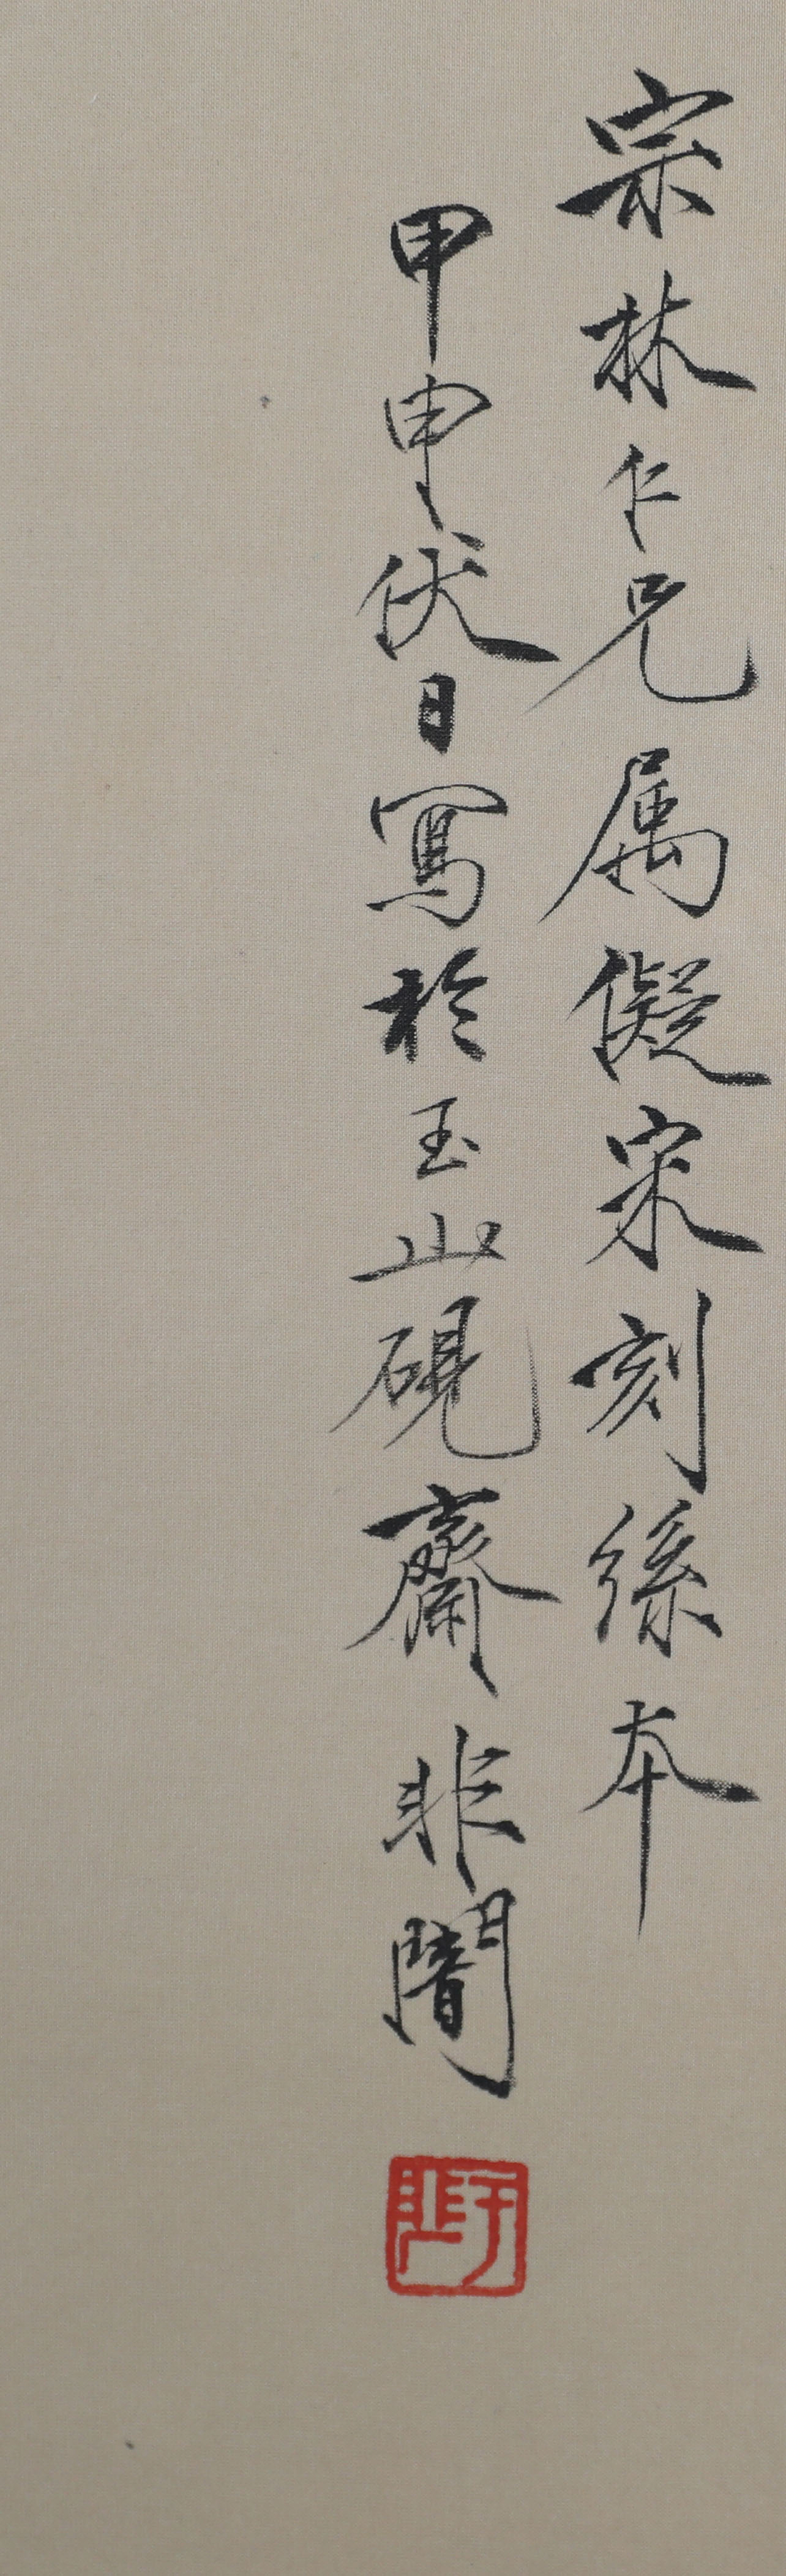 宗林仁兄属儗宋刻絲本
甲申伏日寫於玉山硯齋非闇